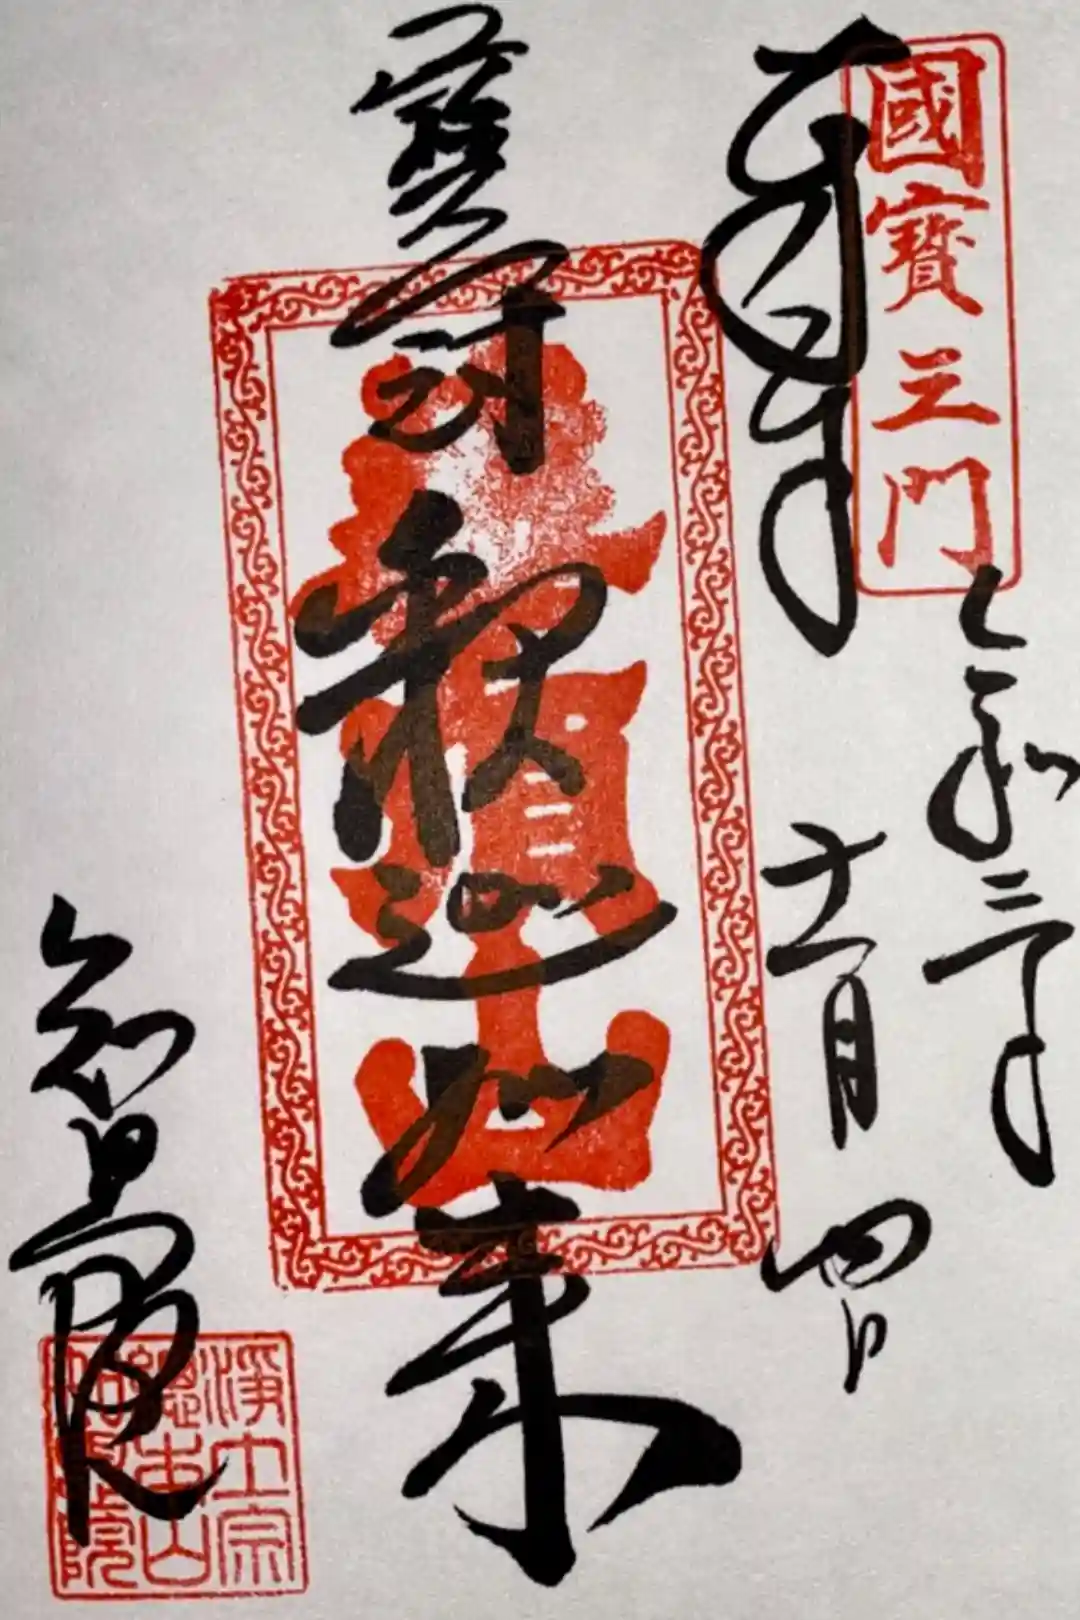 國寳三門
令和三年
奉拝
十一月四日
寳冠釈迦如来
知恩院
淨土宗
總本山
知恩院